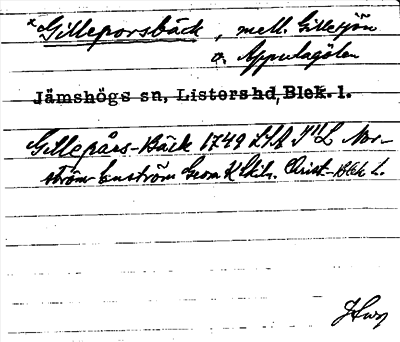 *Gilleporsbäck, mell. Gillesjön
o. Appulagölen
Jämshögs sn, Listers hd, Blek. l.
Gillepårs-Bäck 1749 LSA Nor-
ström Geom Christ-Blek L.